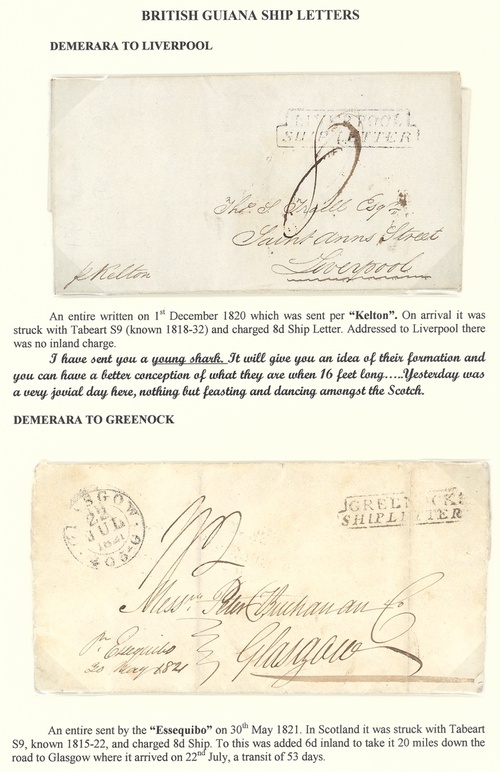 BRITISH GUIANA SHIP LETTERS
DEMERARA TO LIVERPOOL
LIVERPOOL
SHIP LETTER
8
Thos. S. Traill Esqr.
Saint Anns Street
Liverpool
p Kelton
An entire written on 1st December 1820 which was sent per "Kelton". On arrival it was
struck with Tabeart S9 (known 1818-32) and charged 8d Ship Letter. Addressed to Liverpool there
was no inland charge.
I have sent you a young shark. It will give you an idea of their formation and
you can have a better conception of what they are when 16 feet long.....Yesterday was
a very jovial day here, nothing but feasting and dancing amongst the Scotch.
DEMERARA TO GREENOCK
GLASGOW
22
JUL
1821
GREENOCK
SHIP LETTER
1/2
Messrs. Peter Buchanan & Co
Glasgow
Pr. Esequibo
30 May 1821
An entire sent by the "Essequibo" on 30th May 1821. In Scotland it was struck with Tabeart
S9, known 1815-22, and charged 8d Ship. To this was added 6d inland to take it 20 miles down the
road to Glasgow where it arrived on 22nd July, a transit of 53 days.